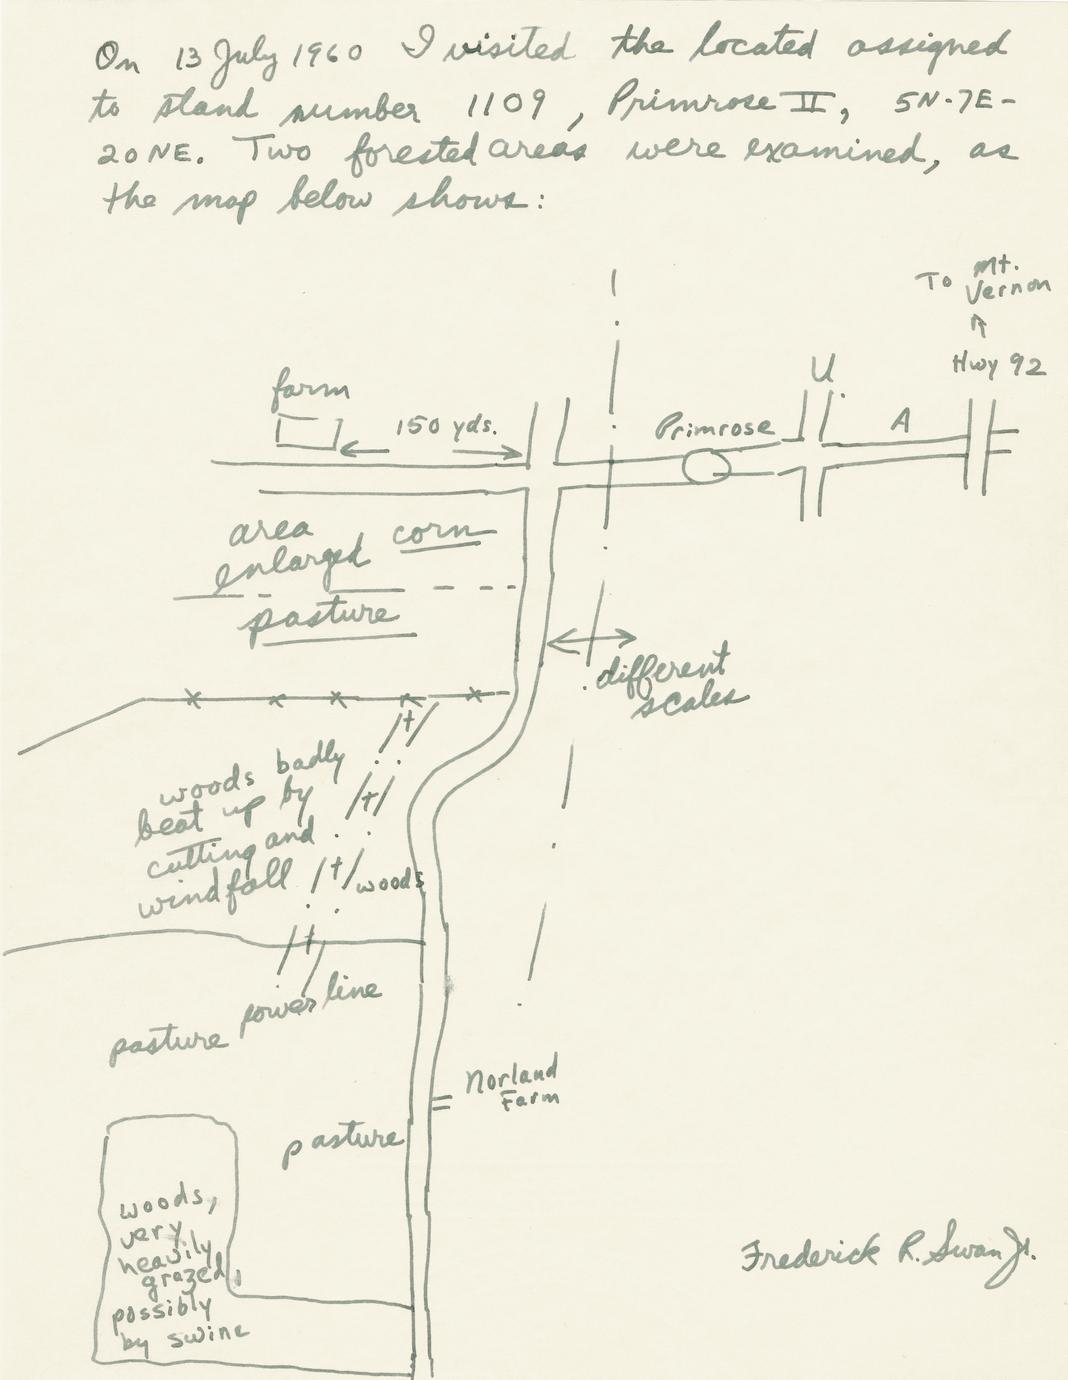 On 13 July 1960 I visited the located assigned
to stand number 1109, Primrose II, 5N-7E-
20NE. Two forested areas were examined, as
the map below shows:
To Mt.
Vernon
Hwy 92
U
farm
150 yds.
Primrose
A
area
enlarged
corn
pasture
different
scales
woods badly
beat up by
cutting and
windfall
woods
power line
pasture
Norland
Farm
pasture
woods,
very
heavily
grazed,
possibly
by swine
Frederick R. Swan Jr.